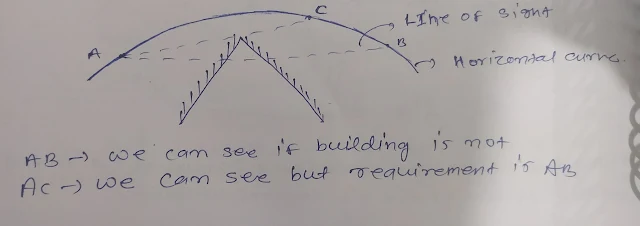 C
Line of Sight
A
B
Horizontal curve.
AB → we can see if building is not
AC → we can see but requirement is AB